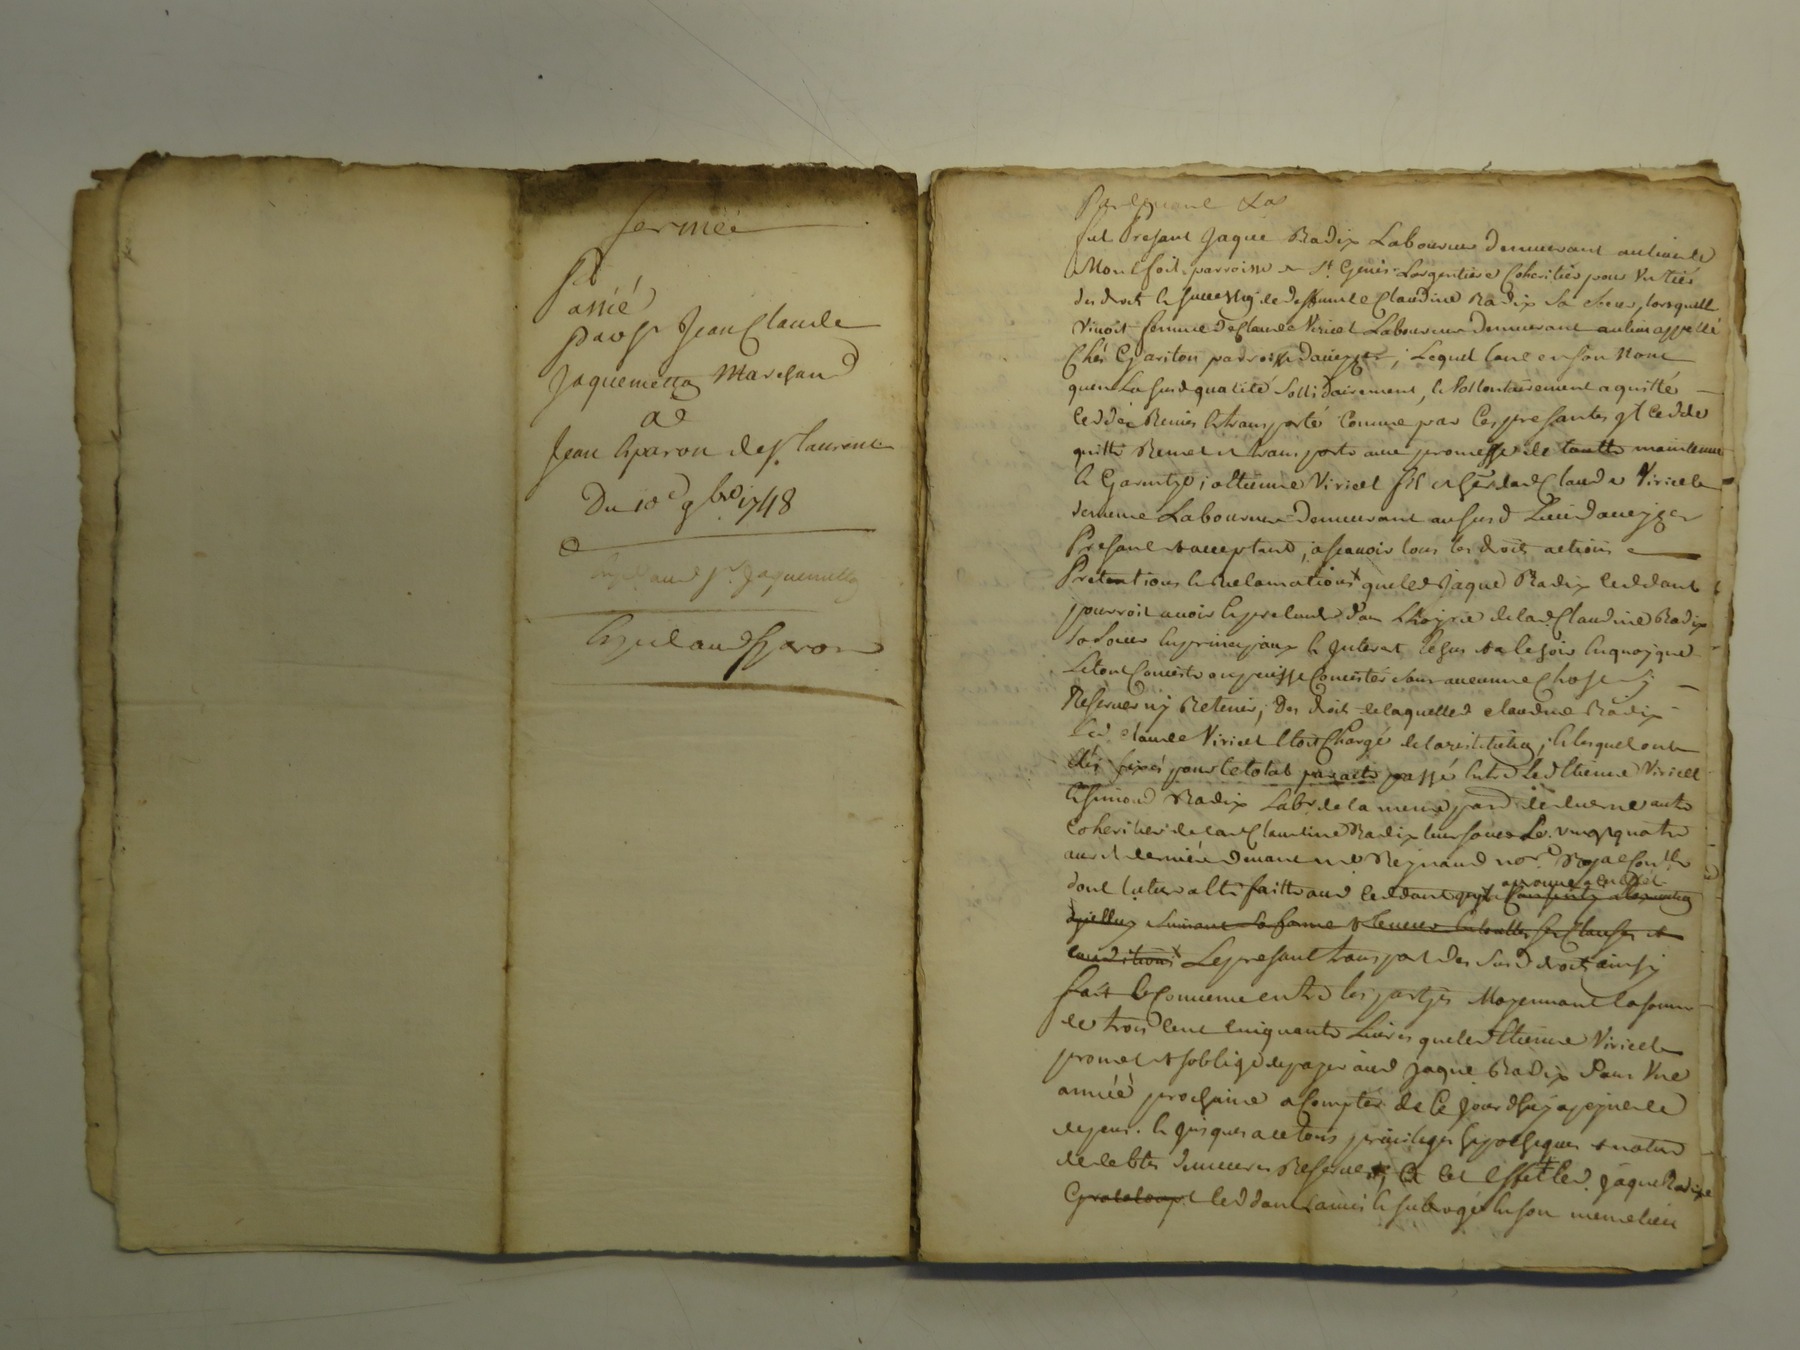 fermée
Passé
par Sr Jean Claude
Jaquemetton Marchand
a
Jean Charon de St laurent
Du 10e 9bre 1748
Expd aud Sr Jaquemetton
Expd aud Charon
Pardevant &a
fut Present Jaque Radix Laboureur demeurant au lieu de
Montfoit parroisse de St Genis Largentiere Coheritier pour Un tiers
des droits de deffunte Claudine Radix Sa Soeur, lorsquelle
Vivoit femme de Claude Viricel Laboureur demeurant au lieu appellé
Chés parroisse daveyze, Lequel tant en son Nom
quen La susd qualité Sollidairement, et Vollontairement a quitté
ceddé Remis et transporté Comme par Ces presantes il cedde
quitte Remet et transporte avec promesse de toutte maintenue
et Garentye, a Etienne Viricel fils et her. dud Claude Viricel
demeure Laboureur demeurant au susd Lieu daveyze
Present et acceptant, ascavoir tous les droits actions et
Pretentions et Reclamations que led Jaque Radix ceddant
pourroit avoir et pretendre dans Lhoyrie de lad. Claudine Radix
sa soeur en principaux et Interest en quoyque
Le tout Conciste ou puisse Concister sans aucune Chose y
Reserver ny Retenir, Des droits de laquelled Claudine Radix
led Claude Viricel etoit Chargé de la restitution, et lesquels ont
étés fixés pour le total par acte passé entre Led Etienne Viricel
et Simond Radix Labr de la meme parr. autre
Coheritier de lad Claudine Radix leur soeur Le vingt quatre
aoust dernier devant me Reynaud nore Royal
dont lecture a été faitte aud ceddant
suivant sa forme & teneur ses Clauses et
conditions Le present transport des susd droits ainsy
fait et Convenu entre les partyes Moyennant la somme
de trois Cent Cinquante Livres que led Etienne Viricel
promet et soblige de payer aud Jaque Radix dans Une
année prochaine a Compter de Ce Jourdhuy a peyne de
depens. et Jusques a ce tous privileges hypotheques et nature
de debtes demeures Reservés, a Cet Effet led. Jaque Radix
ceddant a mis et subrogé en son meme lieu